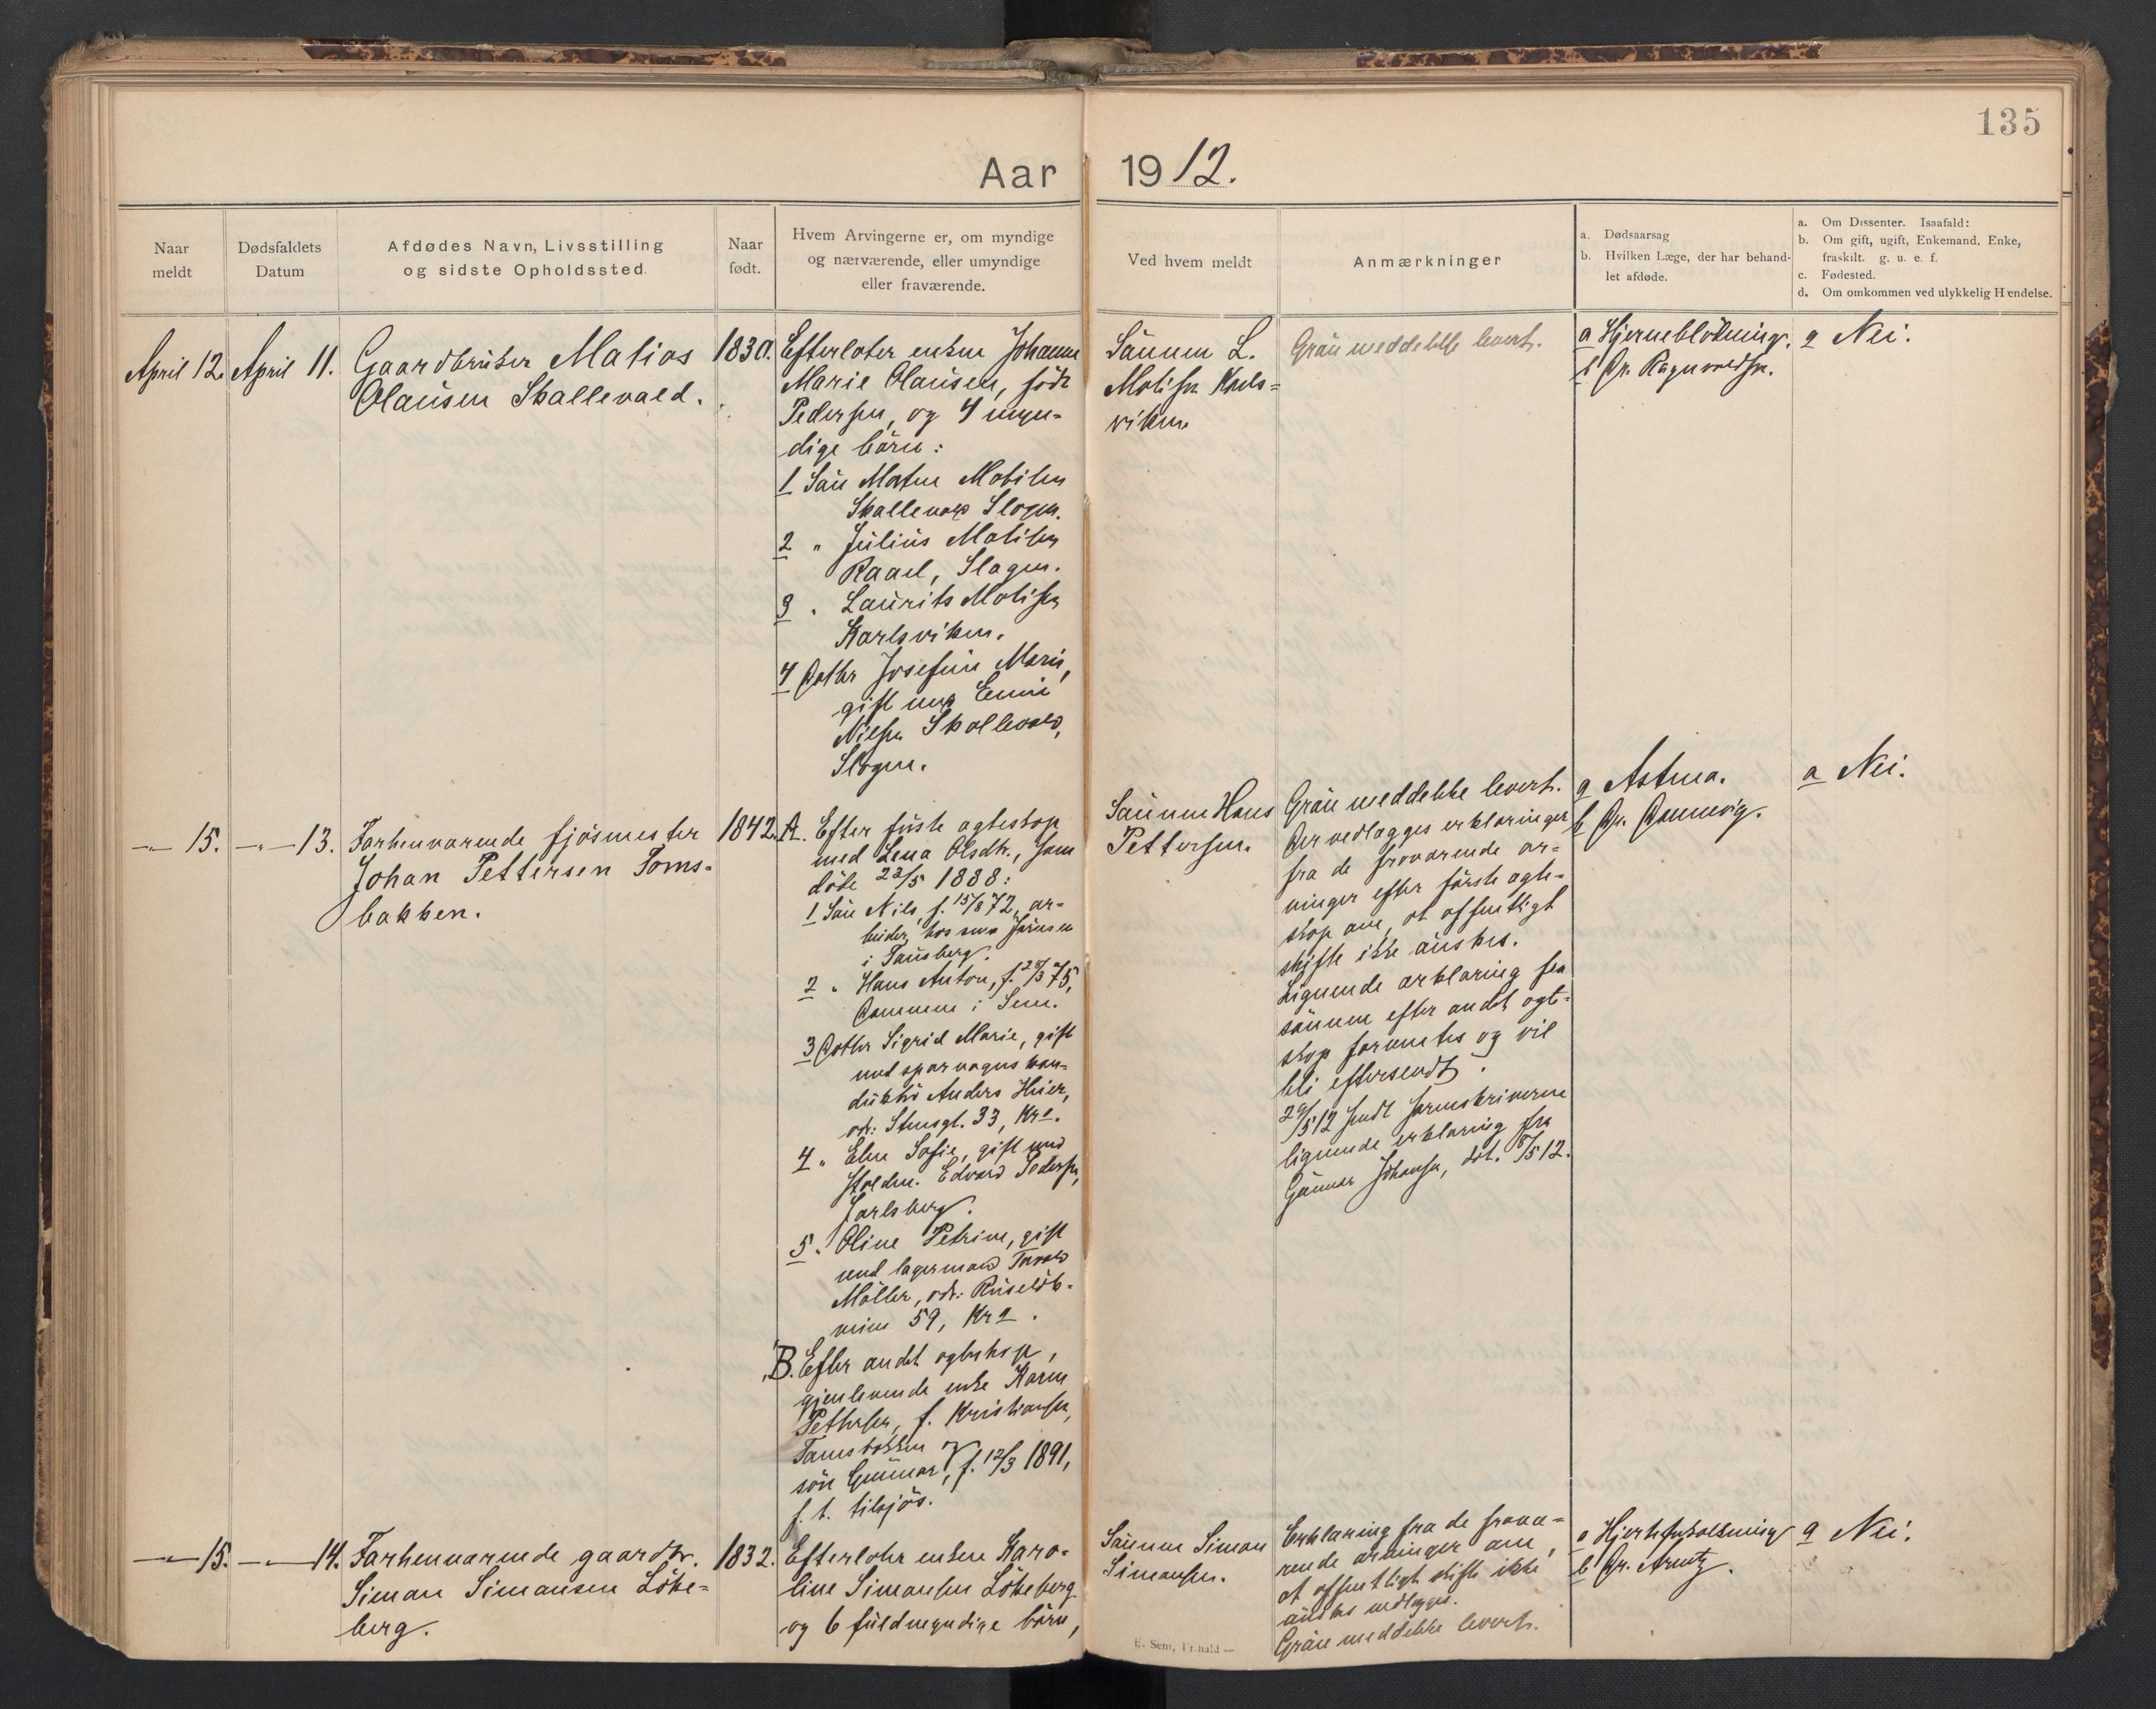 135
Aar 1912.
Naar meldt
Dødsfaldets Datum
Afdødes Navn, Livsstilling og sidste Opholdssted.
Naar født.
Hvem Arvingerne er, om myndige og nærværende, eller umyndige eller fraværende.
Ved hvem meldt
Anmærkninger
a. Dødsaarsag
b. Hvilken Læge, der har behandlet afdøde.
a. Om Dissenter. Isaafald:
b. Om gift, ugift, Enkemand, Enke, fraskilt. g. u. e. f.
c. Fødested.
d. Om omkommen ved ulykkelig Hændelse.
April 12. April 11. Gaardbruker Matias
Olausen Skallevald.
1830.
Efterlater enken Johanne
Marie Olausen, født
Pedersen, og 4 myn-
dige børn:
1 Søn Mathe Matisen
Skallevold Slagen.
2 " Julius Matisen
Raael, Slagen.
3 " Laurits Matisen
Karlsviken.
4 Datter Josefine Marie,
gift med Enni
Nilsen Skallevold,
Slagen.
Sønnen L.
Matisen Karls-
viken
Grøn meddelelse levert.
a Hjerneblødning.
b Dr. Ragnvaldsen.
a Nei.
—"— 15. —"— 13. Forhenværende fjøsmester
Johan Pettersen Toms-
bakken.
1842.
A. Efter første egteskap
med Lena Olsdtr., som
døde 23/5 1888:
1 Søn Nils, f. 15/8 72, ar-
beider, hos Jørnsen
i Tønsberg.
2 " Hans Anton, f. 28/3 75,
Dammen i Sem.
3 Datter Sigrid Marie, gift
med sporvogns kon-
duktør Anders Huser,
adr: Stensgt. 33, Kra.
4 " Elen Sofie, gift med
staldm. Edvard Pedersen,
Jarlsberg.
5 " Oline Petrine, gift
med lagermand Torvald
Møller, adr: Ruseløk-
veien 59, Kra.
B. Efter andet egteskap,
gjenlevende enke Karen
Pettersen, f. Kristiansen,
Tomsbakken og
søn Gunnar, f. 12/3 1891,
f. t. tilsjøs.
Sønnen Hans
Pettersen.
Grøn meddelelse levert.
Der vedlægges erklæringer
fra de fraværende ar-
vinger efter første egte-
skap om, at offentligt
skifte ikke ønskes.
Lignende erklæring fra
sønnen efter andet egte-
skap forventes og vil
bli eftersendt.
29/5 12 sendt sorenskriveren
lignende erklæring fra
Gunnar Johansen, dat. 8/5 12.
a Astma.
b Dr. Dannevig.
a Nei.
—"— 15. —"— 14. Forhenværende gaardbr.
Simon Simonsen Løke-
berg.
1832.
Efterlater enken Karo-
line Simonsen Løkeberg
og 6 fuldmyndige børn,
Sønnen Simon
Simonsen.
Erklæring fra de fravæ-
rende arvinger om,
at offentligt skifte ikke
ønskes vedlægges.
Grøn meddelelse levert.
a Hjerteforkalkning
b Dr. Arentz.
a Nei.
E. Sem, Fr.hald —